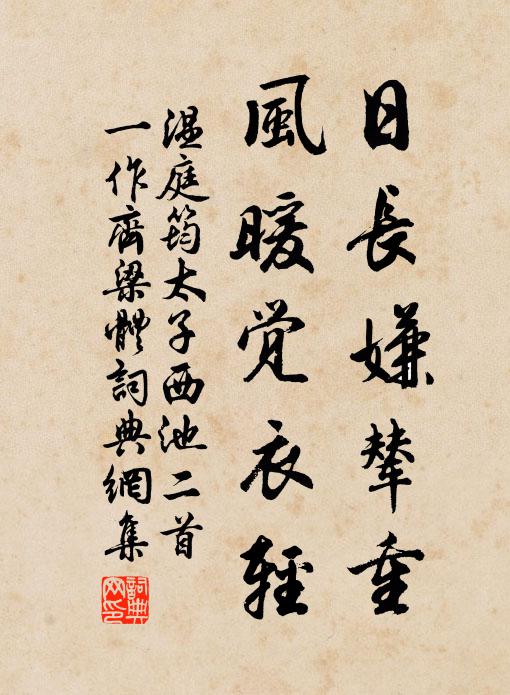 日長嫌輦重
風暖覺衣輕
溫庭筠太子西池二首
一作齊梁體詞典網集
詞典
网印